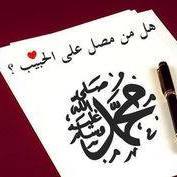 هل من مصل على الحبيب ؟
محمد
صلى الله عليه وسلم